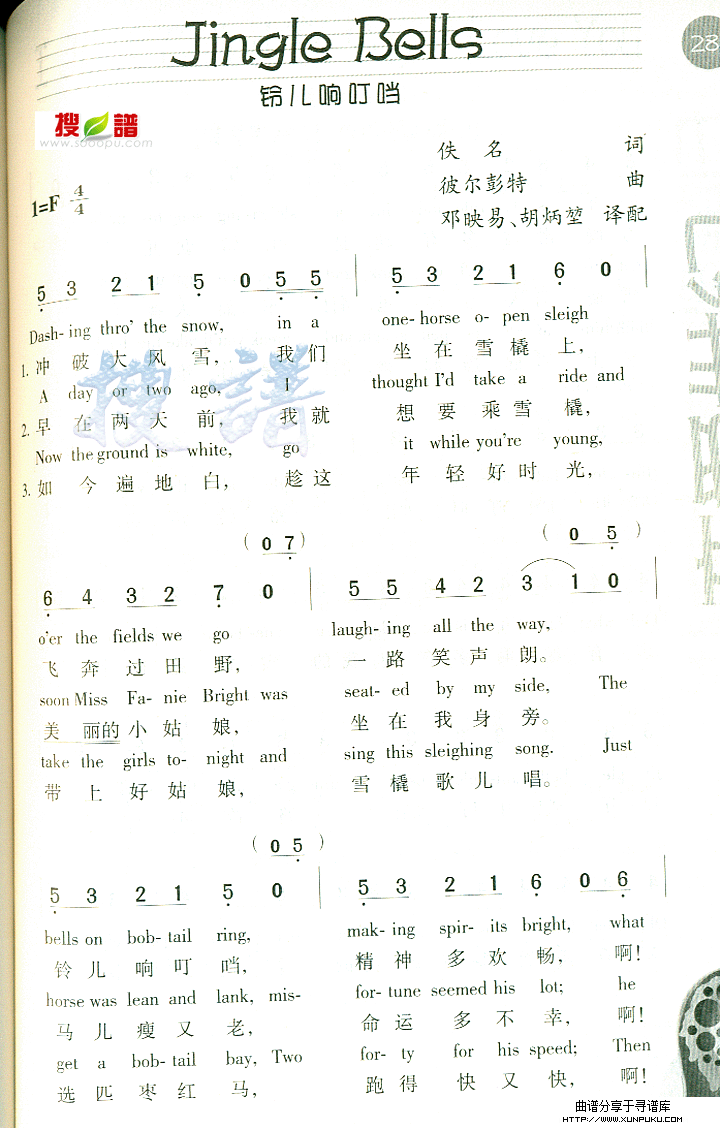 Jingle Bells
28
铃儿响叮当
搜譜
www.sooopu.com
佚名 词
彼尔彭特 曲
1=F 4/4
邓映易、胡炳堃 译配
5 3 2 1 5 0 5 5 | 5 3 2 1 6 0 |
Dash- ing thro' the snow, in a one- horse o- pen sleigh
1. 冲破大风雪， 我们 坐在雪橇上，
A day or two ago, I thought I'd take a ride and
2. 早在两天前， 我就 想要乘雪橇，
Now the ground is white, go it while you're young,
3. 如今遍地白， 趁这 年轻好时光，
(0 7) (0 5)
6 4 3 2 7 0 | 5 5 4 2 3 1 0 |
o'er the fields we go laugh- ing all the way,
飞奔过田野， 一路笑声朗。
soon Miss Fa- nie Bright was seat- ed by my side, The
美丽的小姑娘， 坐在我身旁。
take the girls to- night and sing this sleighing song. Just
带上好姑娘， 雪橇歌儿唱。
(0 5)
5 3 2 1 5 0 | 5 3 2 1 6 0 6 |
bells on bob- tail ring, mak- ing spir- its bright, what
铃儿响叮当， 精神多欢畅， 啊！
horse was lean and lank, mis- for- tune seemed his lot; he
马儿瘦又老， 命运多不幸， 啊！
get a bob- tail bay, Two for- ty for his speed; Then
选匹枣红马， 跑得快又快， 啊！
曲谱分享于寻谱库
HTTP://WWW.XUNPUKU.COM